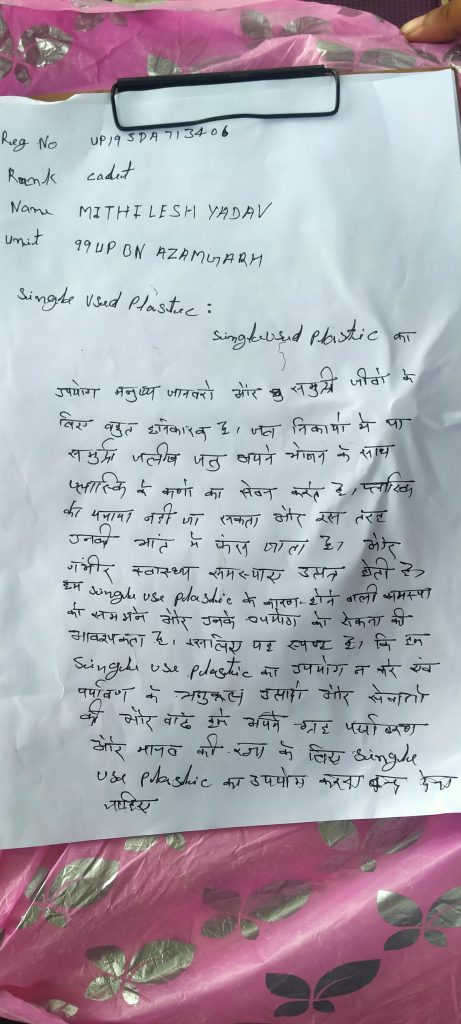 Reg No UP19SDA713406
Rank cadet
Name MITHILESH YADAV
Unit 99 UP BN AZAMGARH
Single Used Plastic :
single used plastic का
उपयोग मनुष्य जानवरो और समुद्री जीवो के
लिए बहुत हानिकारक है, जल निकायो मे पा
समुद्री जलीय जंतु अपने भोजन के साथ
प्लास्टिक के कणो का सेवन करते है, प्लास्टिक
को पचाया नही जा सकता और इस तरह
उनकी आंत मे फंस जाता है, और
गंभीर स्वास्थ्य समस्याए उत्पन्न होती है,
हम single use plastic के कारण होने वाली समस्या
को समझने और उनके उपयोग को रोकना की
आवश्यकता है, इसलिए यह स्पष्ट है, कि हम
single use plastic का उपयोग न करे एंव
पर्यावण के अनुकूल उत्पादो और सेवाओ
की और बढे हमे अपने ग्रह पर्यावरण
और मानव की रक्षा के लिए single
use plastic का उपयोग करना बन्द देना
चाहिए